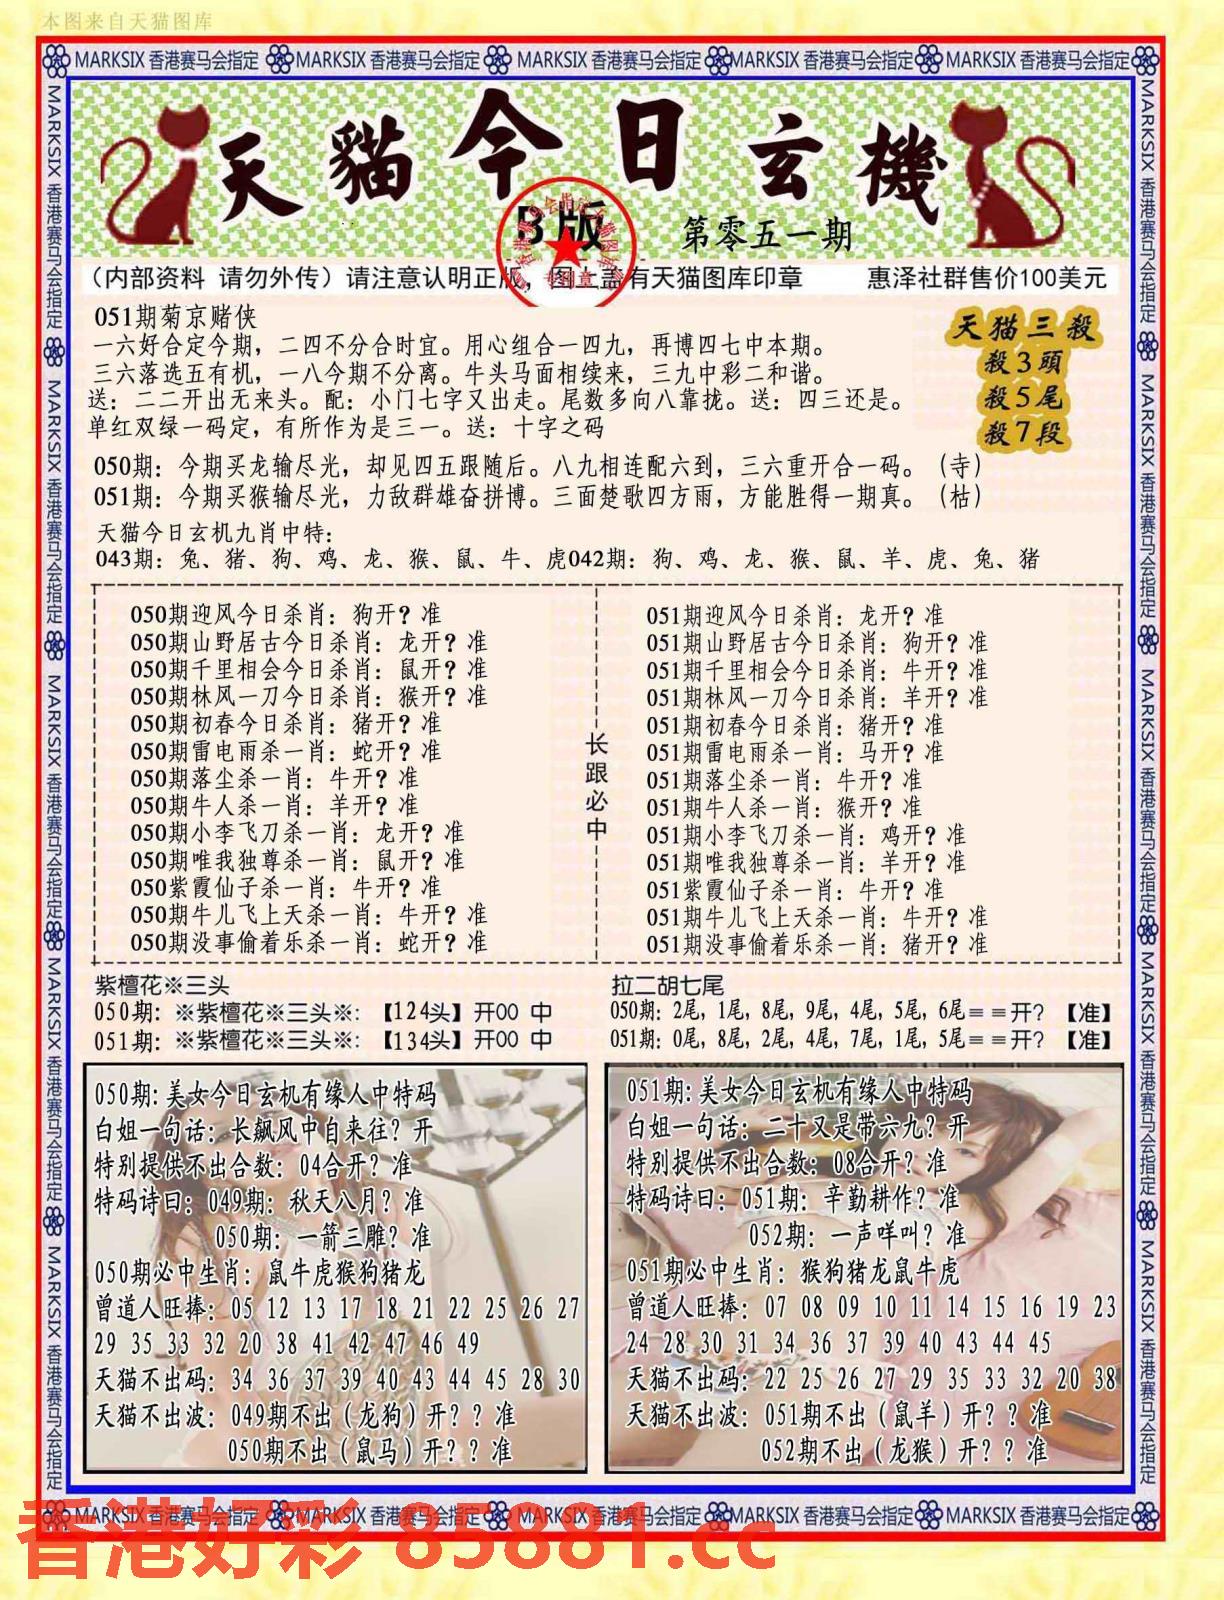 本图来自天猫图库
MARKSIX 香港赛马会指定 MARKSIX 香港赛马会指定 MARKSIX 香港赛马会指定 MARKSIX 香港赛马会指定 MARKSIX 香港赛马会指定
天貓今日玄機
B版
第零五一期
（内部资料 请勿外传）请注意认明正版，图上盖有天猫图库印章 惠泽社群售价100美元
051期菊京赌侠
一六好合定今期，二四不分合时宜。用心组合一四九，再博四七中本期。
三六落选五有机，一八今期不分离。牛头马面相续来，三九中彩二和谐。
送：二二开出无来头。配：小门七字又出走。尾数多向八靠拢。送：四三还是。
单红双绿一码定，有所作为是三一。送：十字之码
天猫三殺
殺3頭
殺5尾
殺7段
050期：今期买龙输尽光，却见四五跟随后。八九相连配六到，三六重开合一码。（寺）
051期：今期买猴输尽光，力敌群雄奋拼博。三面楚歌四方雨，方能胜得一期真。（枯）
天猫今日玄机九肖中特：
043期：兔、猪、狗、鸡、龙、猴、鼠、牛、虎042期：狗、鸡、龙、猴、鼠、羊、虎、兔、猪
050期迎风今日杀肖：狗开？准
050期山野居古今日杀肖：龙开？准
050期千里相会今日杀肖：鼠开？准
050期林风一刀今日杀肖：猴开？准
050期初春今日杀肖：猪开？准
050期雷电雨杀一肖：蛇开？准
050期落尘杀一肖：牛开？准
050期牛人杀一肖：羊开？准
050期小李飞刀杀一肖：龙开？准
050期唯我独尊杀一肖：鼠开？准
050紫霞仙子杀一肖：牛开？准
050期牛儿飞上天杀一肖：牛开？准
050期没事偷着乐杀一肖：蛇开？准
长跟必中
051期迎风今日杀肖：龙开？准
051期山野居古今日杀肖：狗开？准
051期千里相会今日杀肖：牛开？准
051期林风一刀今日杀肖：羊开？准
051期初春今日杀肖：猪开？准
051期雷电雨杀一肖：马开？准
051期落尘杀一肖：牛开？准
051期牛人杀一肖：猴开？准
051期小李飞刀杀一肖：鸡开？准
051期唯我独尊杀一肖：羊开？准
051紫霞仙子杀一肖：牛开？准
051期牛儿飞上天杀一肖：牛开？准
051期没事偷着乐杀一肖：猪开？准
紫檀花※三头
050期：※紫檀花※三头※：【124头】开00 中
051期：※紫檀花※三头※：【134头】开00 中
拉二胡七尾
050期：2尾，1尾，8尾，9尾，4尾，5尾，6尾＝＝开？【准】
051期：0尾，8尾，2尾，4尾，7尾，1尾，5尾＝＝开？【准】
050期：美女今日玄机有缘人中特码
白姐一句话：长飙风中自来往？开
特别提供不出合数：04合开？准
特码诗曰：049期：秋天八月？准
050期：一箭三雕？准
050期必中生肖：鼠牛虎猴狗猪龙
曾道人旺捧：05 12 13 17 18 21 22 25 26 27
29 35 33 32 20 38 41 42 47 46 49
天猫不出码：34 36 37 39 40 43 44 45 28 30
天猫不出波：049期不出（龙狗）开？？准
050期不出（鼠马）开？？准
051期：美女今日玄机有缘人中特码
白姐一句话：二十又是带六九？开
特别提供不出合数：08合开？准
特码诗曰：051期：辛勤耕作？准
052期：一声咩叫？准
051期必中生肖：猴狗猪龙鼠牛虎
曾道人旺捧：07 08 09 10 11 14 15 16 19 23
24 28 30 31 34 36 37 39 40 43 44 45
天猫不出码：22 25 26 27 29 35 33 32 20 38
天猫不出波：051期不出（鼠羊）开？？准
052期不出（龙猴）开？？准
MARKSIX 香港赛马会指定 MARKSIX 香港赛马会指定 MARKSIX 香港赛马会指定 MARKSIX 香港赛马会指定
MARKSIX 香港赛马会指定 MARKSIX 香港赛马会指定 MARKSIX 香港赛马会指定 MARKSIX 香港赛马会指定
MARKSIX 香港赛马会指定 MARKSIX 香港赛马会指定 MARKSIX 香港赛马会指定 MARKSIX 香港赛马会指定 MARKSIX 香港赛马会指定
香港好彩 85881.cc